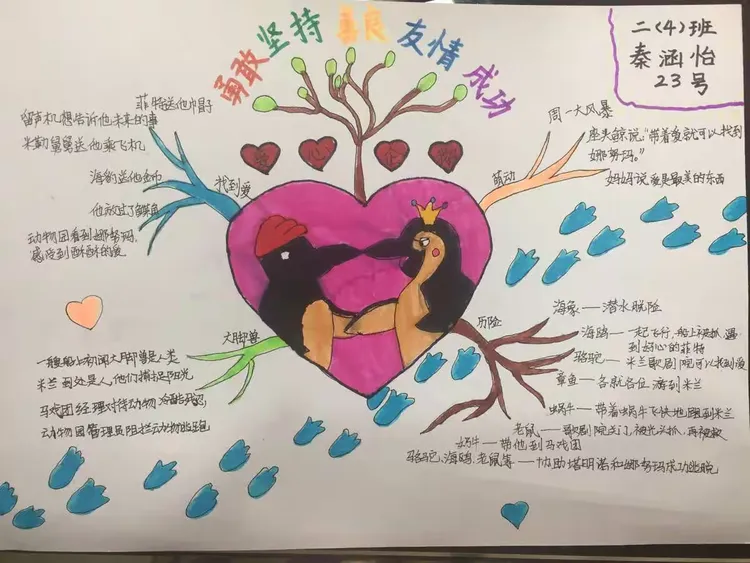 勇敢 坚持 善良 友情 成功
二(4)班
秦涵怡
23号
菲特送他帽子
留声机想告诉他未来的事
米勒舅舅送他乘飞机
海豹送他金币
他放过了
动物园看到娜努玛,
感受到 的爱
找到爱
周一大风暴
座头鲸说:"带着爱就可以找到
娜努玛。"
妈妈说爱是最美的东西
萌动
大脚兽
一艘船上初闻大脚兽是人类
米兰到处是人,他们捕捉阳光
马戏团经理对待动物
动物园管理员阻拦动物逃跑
历险
海象——潜水脱险
海鸥——一起飞行,船上被抓,遇
到好心的菲特
骆驼——米兰歌剧院可以找到爱
章鱼——各就各位 到米兰
蜗牛——带着蜗牛飞快地 到米兰
老鼠——歌剧院关了,被 抓,再被救
奶牛——带他到马戏团
骆驼、海鸥、老鼠等——协助塔明诺和娜努玛成功逃脱